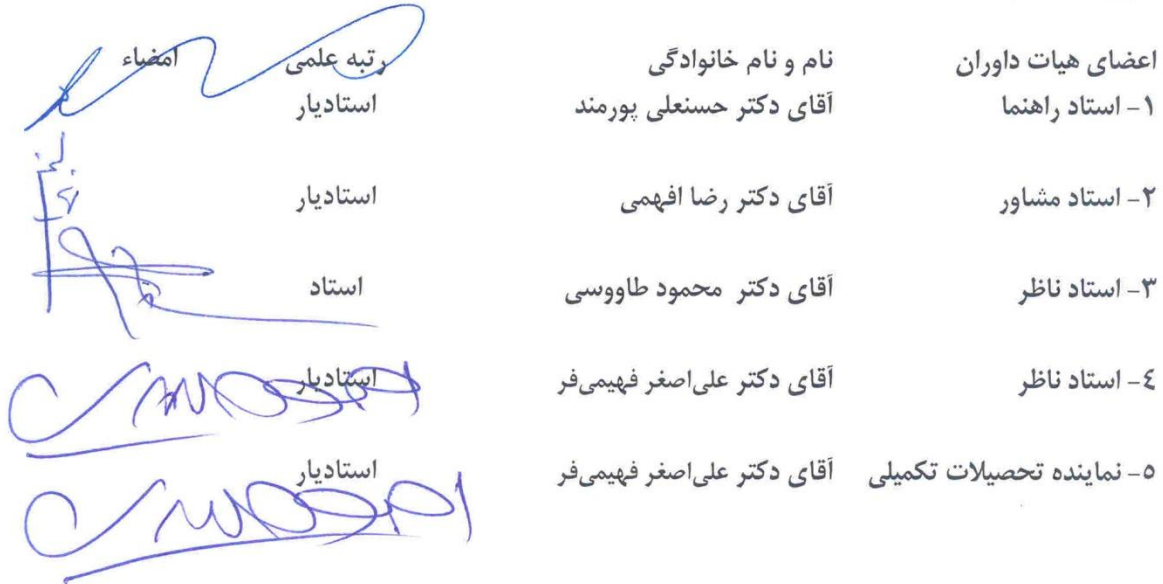 اعضای هیات داوران نام و نام خانوادگی رتبه علمی امضاء
۱- استاد راهنما آقای دکتر حسنعلی پورمند استادیار
۲- استاد مشاور آقای دکتر رضا افهمی استادیار
۳- استاد ناظر آقای دکتر محمود طاووسی استاد
٤- استاد ناظر آقای دکتر علی‌اصغر فهیمی‌فر استادیار
٥- نماینده تحصیلات تکمیلی آقای دکتر علی‌اصغر فهیمی‌فر استادیار